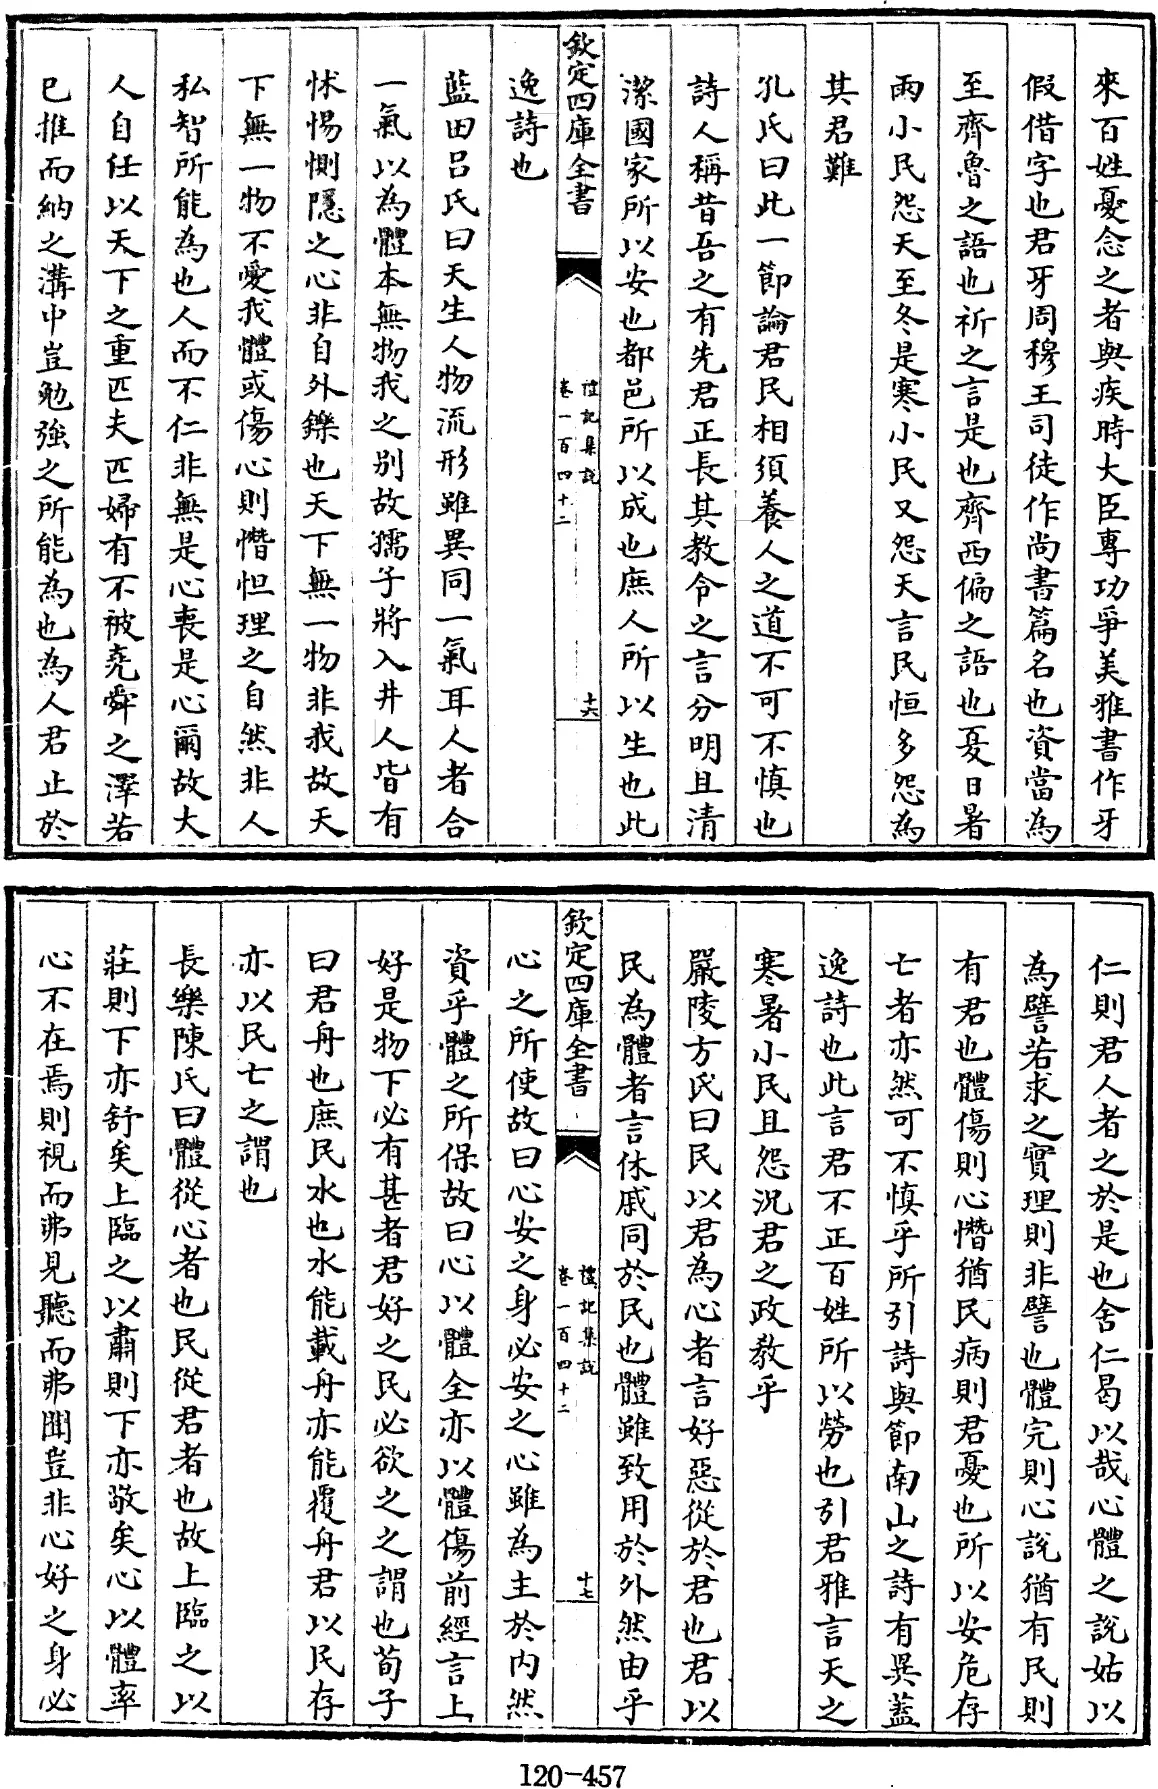 來百姓憂念之者與疾時大臣專功爭美雅書作牙
假借字也君牙周穆王司徒作尚書篇名也資當為
至齊魯之語也祈之言是也齊西偏之語也夏日暑
雨小民怨天至冬是寒小民又怨天言民恒多怨為
其君難
孔氏曰此一節論君民相須養人之道不可不慎也
詩人稱昔吾之有先君正長其教令之言分明且清
潔國家所以安也都邑所以成也庶人所以生也此
欽定四庫全書
禮記集說
卷一百四十二
十六
逸詩也
藍田呂氏曰天生人物流形雖異同一氣耳人者合
一氣以為體本無物我之别故孺子將入井人皆有
怵惕惻隱之心非自外鑠也天下無一物非我故天
下無一物不愛我體或傷心則憯怛理之自然非人
私智所能為也人而不仁非無是心喪是心爾故大
人自任以天下之重匹夫匹婦有不被堯舜之澤若
已推而納之溝中豈勉强之所能為也為人君止於
仁則君人者之於是也舍仁曷以哉心體之說姑以
為譬若求之實理則非譬也體完則心說猶有民則
有君也體傷則心憯猶民病則君憂也所以安危存
亡者亦然可不慎乎所引詩與節南山之詩有異蓋
逸詩也此言君不正百姓所以勞也引君雅言天之
寒暑小民且怨況君之政教乎
嚴陵方氏曰民以君為心者言好惡從於君也君以
民為體者言休戚同於民也體雖致用於外然由乎
欽定四庫全書
禮記集說
卷一百四十二
十七
心之所使故曰心安之身必安之心雖為主於内然
資乎體之所保故曰心以體全亦以體傷前經言上
好是物下必有甚者君好之民必欲之之謂也荀子
曰君舟也庶民水也水能載舟亦能覆舟君以民存
亦以民亡之謂也
長樂陳氏曰體從心者也民從君者也故上臨之以
莊則下亦舒矣上臨之以肅則下亦敬矣心以體率
心不在焉則視而弗見聽而弗聞豈非心好之身必
120-457